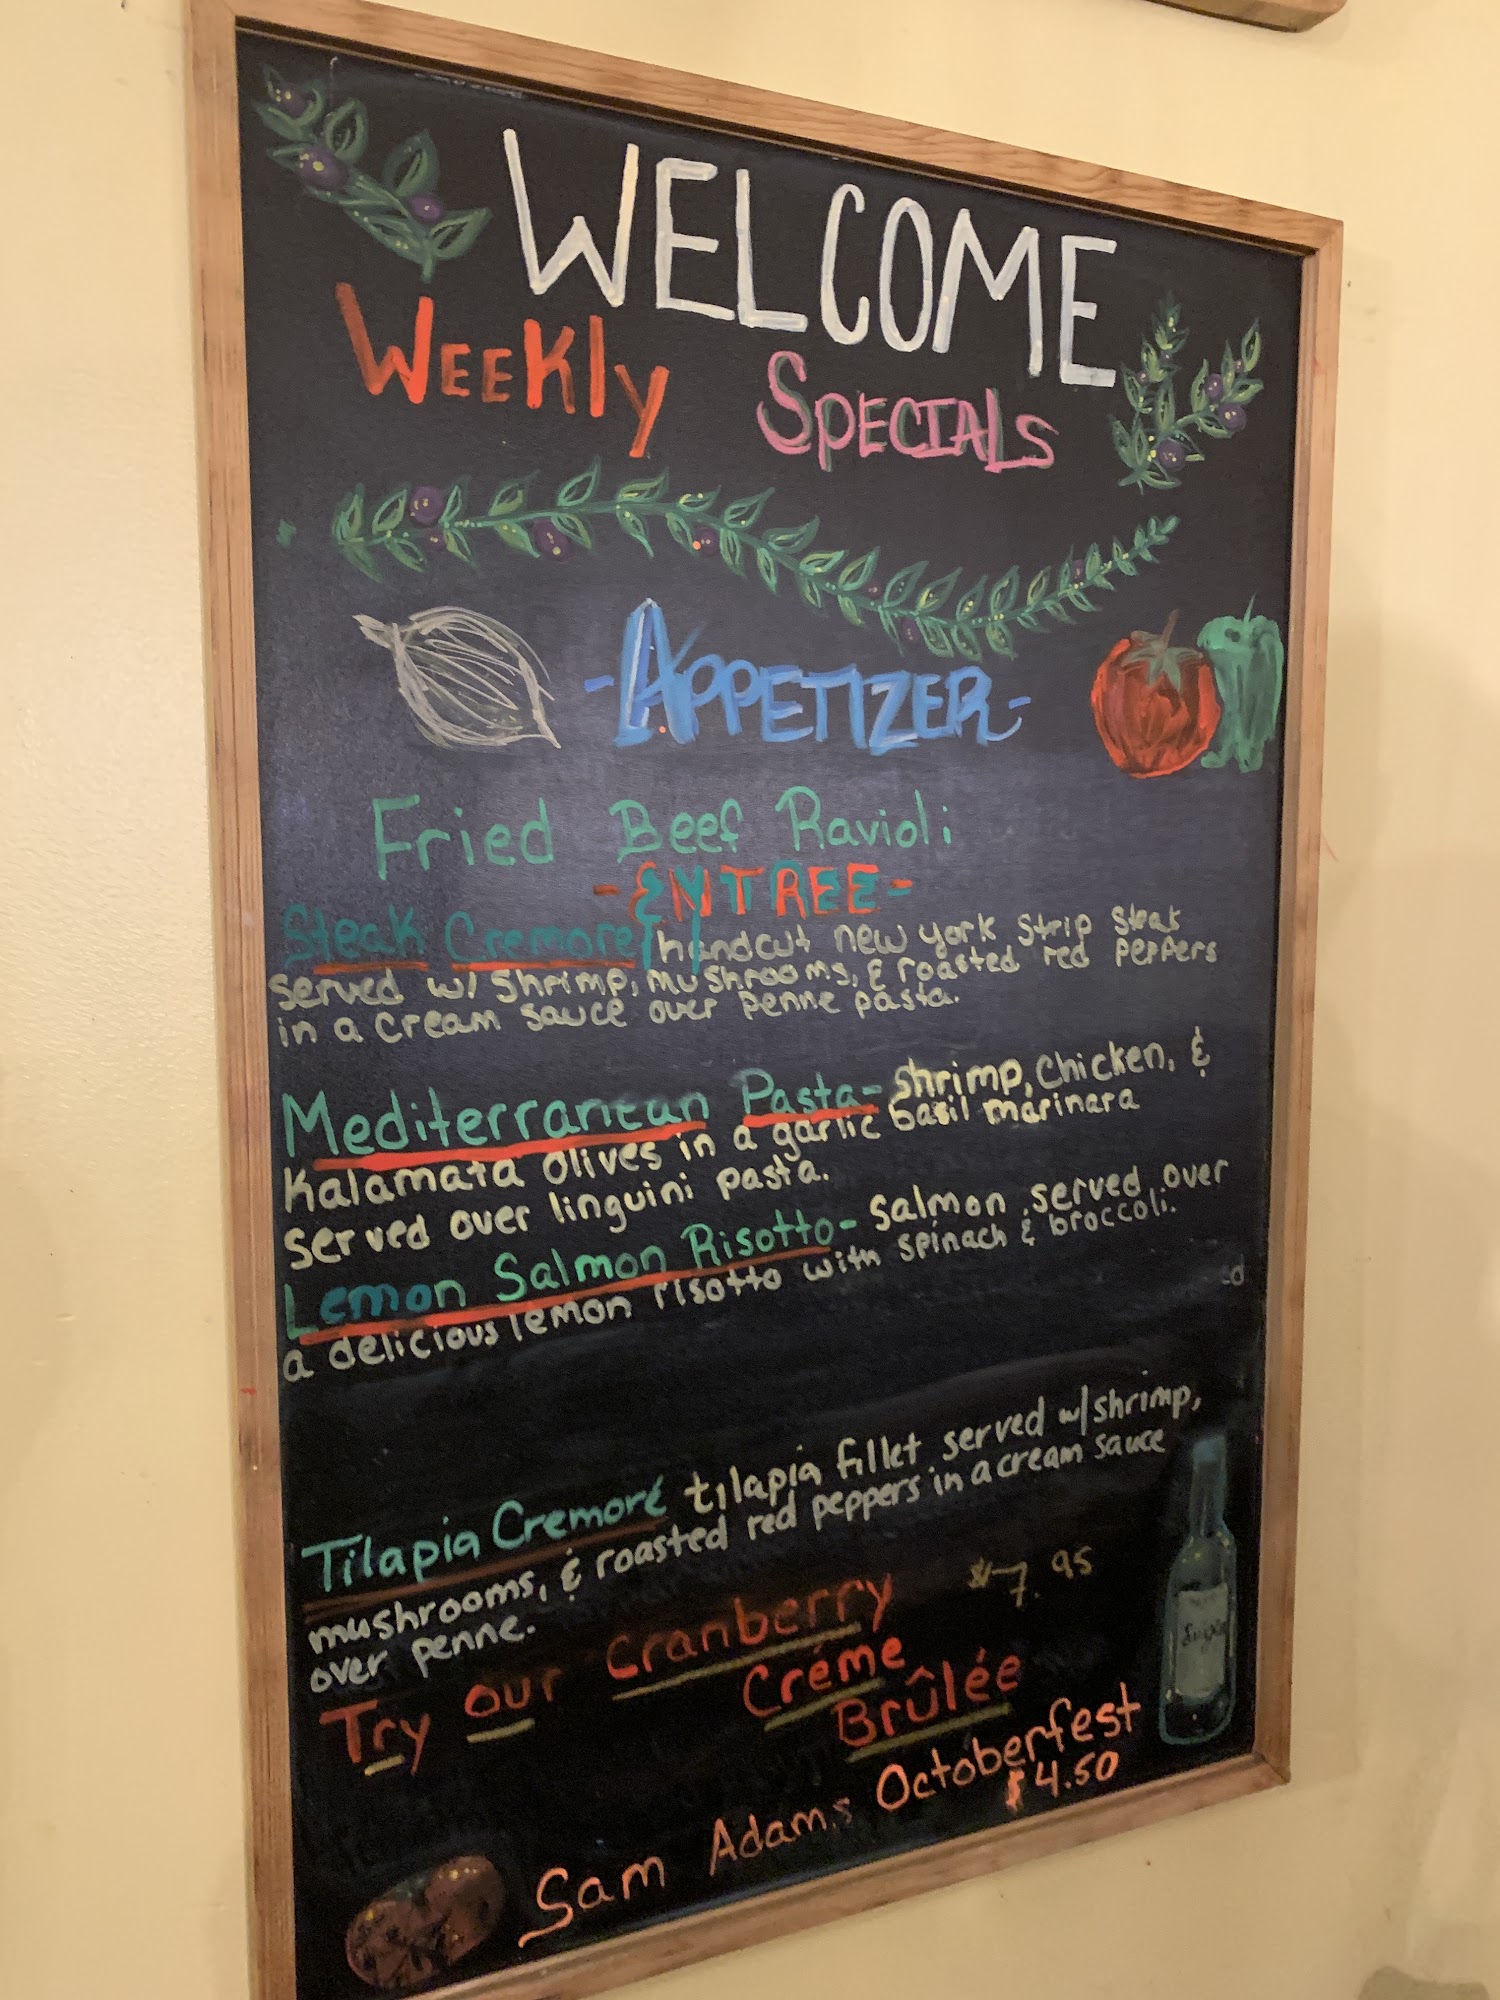 WELCOME
WEEKly SPECIALS
-APPETIZER-
Fried Beef Ravioli
-ENTREE-
Steak Cremore handcut new york strip steak
served w/ shrimp, mushrooms, & roasted red peppers
in a cream sauce over penne pasta.
Mediterranean Pasta- shrimp, chicken, &
Kalamata olives in a garlic basil marinara
served over linguini pasta.
Lemon Salmon Risotto- salmon served over
a delicious lemon risotto with spinach & broccoli.
Tilapia Cremoré tilapia fillet served w/ shrimp,
mushrooms, & roasted red peppers in a cream sauce
over penne.
$7.95
Try our Cranberry
Créme
Brûlée
Sam Adams Octoberfest
$4.50